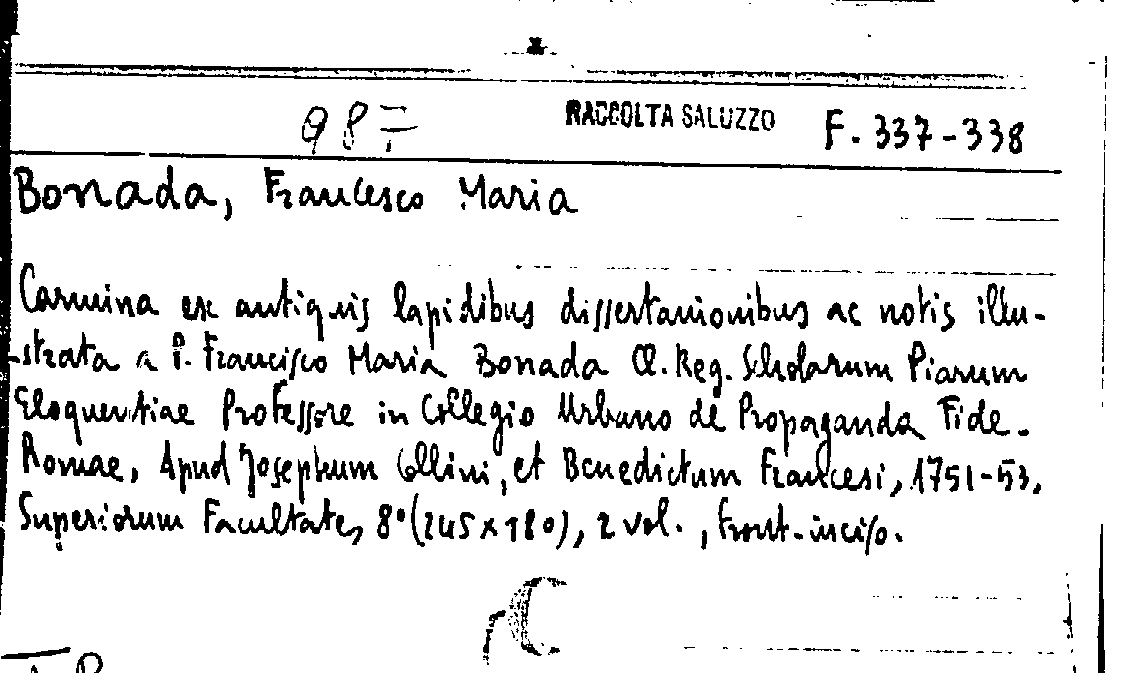 98 =
RACCOLTA SALUZZO F. 337-338
Bonada, Francesco Maria
Carmina ex antiquis lapidibus dissertanionibus ac notis illu-
-strata a P. Francisco Maria Bonada Cl. Reg. Scholarum Piarum
Eloquentiae Professore in Collegio Urbano de Propaganda Fide.
Romae, Apud Josephum Collini, et Benedictum Francesi, 1751-53.
Superiorum Facultate, 8° (245x180), 2 vol., front. inciso.